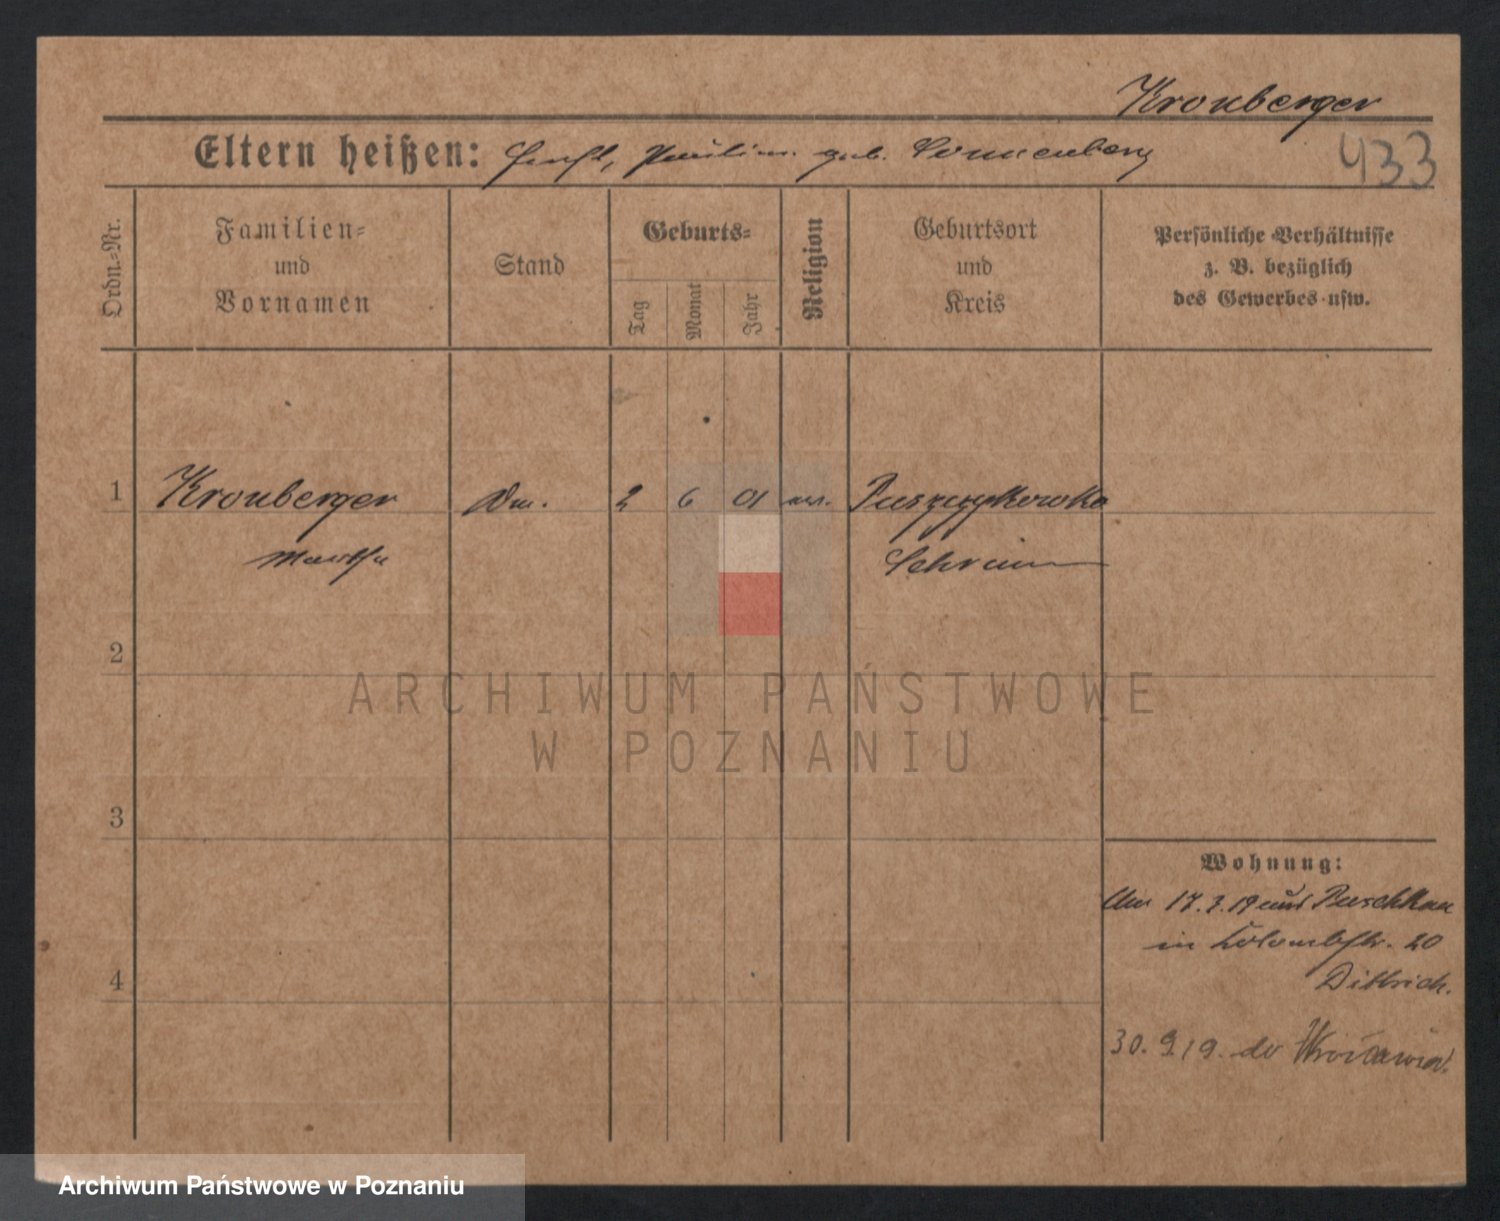 Kronberger
Eltern heißen: Paulin. geb. Sonnenberg
433
Ordn.-Nr.
Familien-
und
Vornamen
Stand
Geburts-
Tag
Monat
Jahr
Religion
Geburtsort
und
Kreis
Persönliche Verhältnisse
z. B. bezüglich
des Gewerbes usw.
1 Kronberger 2 6 01 Puszczykowko
Martha Schrimm
2
3
4
Wohnung:
Am 17.3.19 aus Puschkau
in 20
Dittrich.
30.9.19. do Wrocławia.
ARCHIWUM PAŃSTWOWE
W POZNANIU
Archiwum Państwowe w Poznaniu